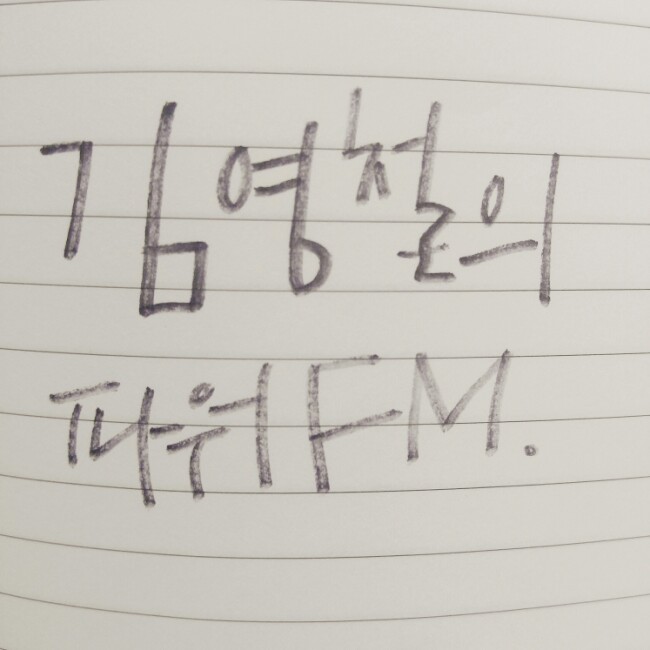 김영철의
파워FM.